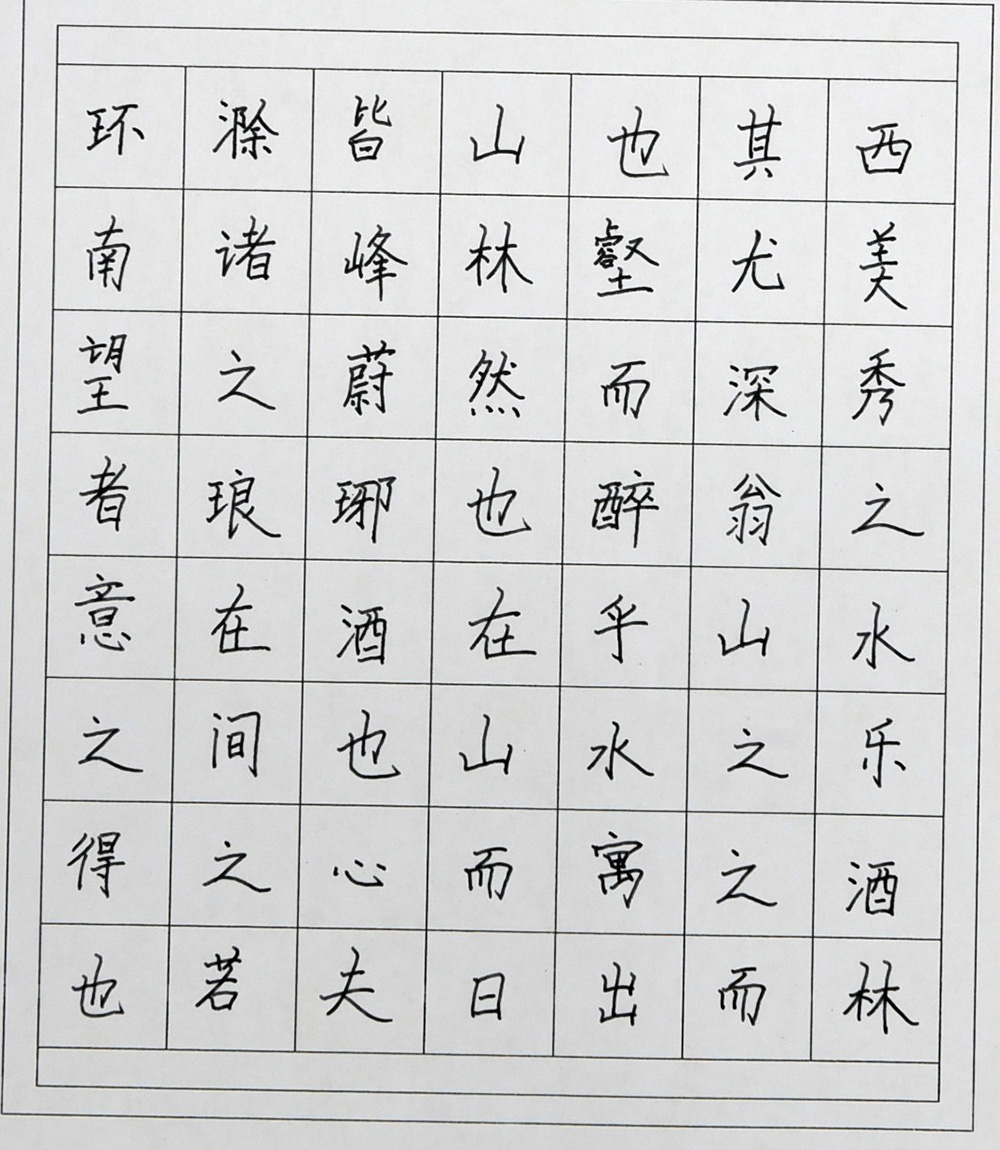 环滁皆山也其西
南诸峰林壑尤美
望之蔚然而深秀
者琅琊也醉翁之
意在酒在乎山水
之间也山水之乐
得之心而寓之酒
也若夫日出而林